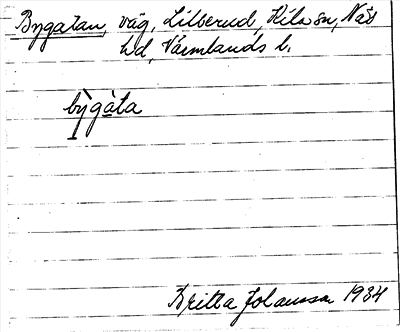 Bygatan, väg, Lilberud, Kila sn, Näs
hd, Värmlands l.
bỳgàta
Britta Johansson 1934